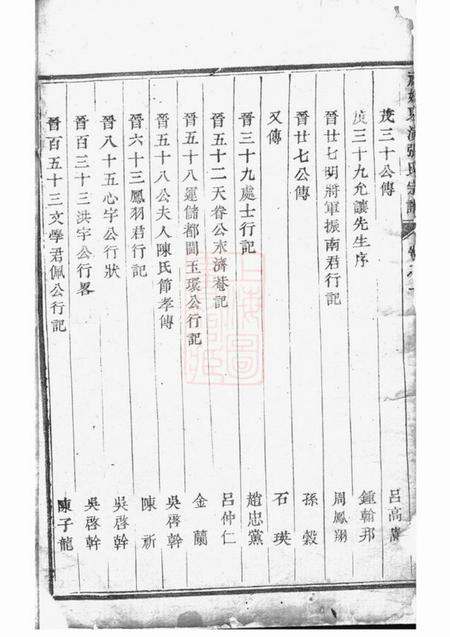 張氏宗譜
茂三十公傳 呂高廣
茂三十九允讓先生序 鍾翰邦
晉廿七明將軍振南君行記 周鳳翔
晉廿七公傳 孫毅
又傳 石瑛
晉三十九處士行記 趙忠黨
晉五十二天眷公永濟菴記 呂仲仁
晉五十八運儲都閫玉環公行記 金蘭
晉五十八公夫人陳氏節孝傳 吳啓幹
晉六十三鳳羽君行記 陳祈
晉八十五心宇公行狀 吳啓幹
晉百三十三洪宇公行畧 吳啓幹
晉百五十三文學君佩公行記 陳子龍